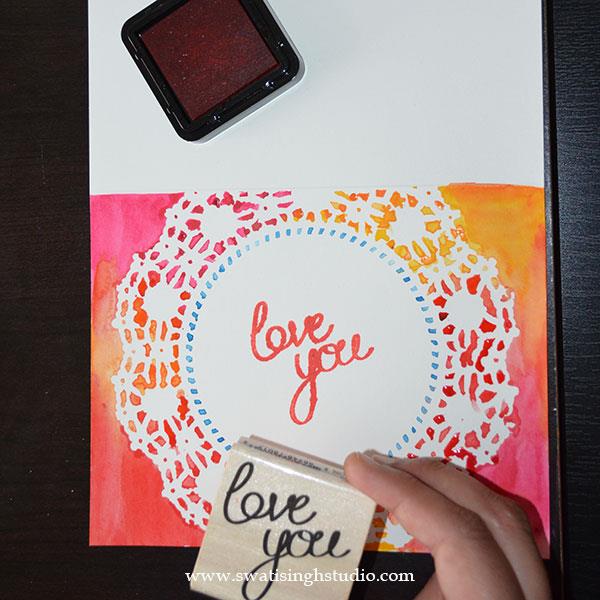 love
you
love
you
www.swatisinghstudio.com